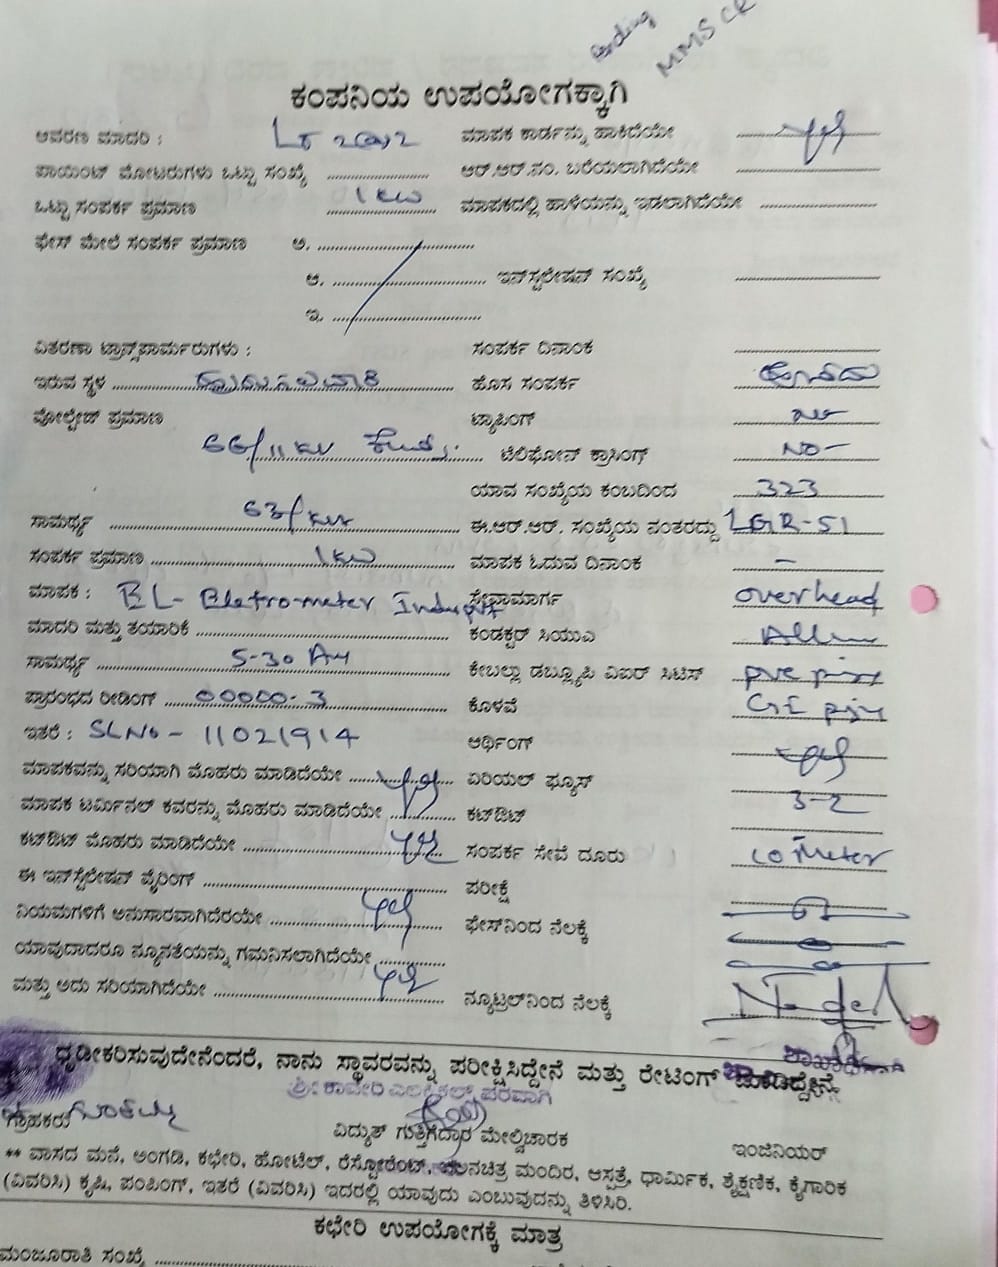 MMS CR
ಕಂಪನಿಯ ಉಪಯೋಗಕ್ಕಾಗಿ
ಆವರಣ ಮಾದರಿ : LT ಮಾಪಕ ಕಾರ್ಡನ್ನು ಹಾಕಿದೆಯೇ yes
ಪಾಯಿಂಟ್ ಮೋಟರುಗಳು ಒಟ್ಟು ಸಂಖ್ಯೆ ಆರ್.ಆರ್.ನಂ. ಬರೆಯಲಾಗಿದೆಯೇ
ಒಟ್ಟು ಸಂಪರ್ಕ ಪ್ರಮಾಣ 1 KW ಮಾಪಕದಲ್ಲಿ ಹಾಳೆಯನ್ನು ಇಡಲಾಗಿದೆಯೇ
ಫೇಸ್ ಮೇಲೆ ಸಂಪರ್ಕ ಪ್ರಮಾಣ ಅ.
ಆ. ಇನ್‌ಸ್ಟಲೇಷನ್ ಸಂಖ್ಯೆ
ಇ.
ವಿತರಣಾ ಟ್ರಾನ್ಸ್‌ಫಾರ್ಮರುಗಳು : ಸಂಪರ್ಕ ದಿನಾಂಕ
ಇರುವ ಸ್ಥಳ ಹೊಸ ಸಂಪರ್ಕ ಹೌದು
ವೋಲ್ಟೇಜ್ ಪ್ರಮಾಣ ಟ್ಯಾಪಿಂಗ್ no
66/11 KV ಟೆಲಿಫೋನ್ ಕ್ರಾಸಿಂಗ್ NO-
ಯಾವ ಸಂಖ್ಯೆಯ ಕಂಬದಿಂದ 323
ಸಾಮರ್ಥ್ಯ 63/ ಈ.ಆರ್.ಆರ್. ಸಂಖ್ಯೆಯ ನಂತರದ್ದು LGR-51
ಸಂಪರ್ಕ ಪ್ರಮಾಣ 1 KW ಮಾಪಕ ಓದುವ ದಿನಾಂಕ -
ಮಾಪಕ : BL- ಸೇವಾಮಾರ್ಗ overhead
ಮಾದರಿ ಮತ್ತು ತಯಾರಿಕೆ ಕಂಡಕ್ಟರ್ ಸಿಯುಎ
ಸಾಮರ್ಥ್ಯ 5-30 ಕೇಬಲ್ಲಾ ಡಬ್ಲ್ಯೂಪಿ ವಿಐರ್ ಸಿಟಿಸ್ pvc
ಪ್ರಾರಂಭದ ರೀಡಿಂಗ್ 00000-3 ಕೊಳವೆ GI
ಇತರೆ : SL No - 11021914 ಆರ್ಥಿಂಗ್ yes
ಮಾಪಕವನ್ನು ಸರಿಯಾಗಿ ಮೊಹರು ಮಾಡಿದೆಯೇ yes ಏರಿಯಲ್ ಫ್ಯೂಸ್
ಮಾಪಕ ಟರ್ಮಿನಲ್ ಕವರನ್ನು ಮೊಹರು ಮಾಡಿದೆಯೇ ಕಟ್‌ಔಟ್ 3-2
ಕಟ್‌ಔಟ್ ಮೊಹರು ಮಾಡಿದೆಯೇ yes ಸಂಪರ್ಕ ಸೇವೆ ದೂರು meter
ಈ ಇನ್‌ಸ್ಟಲೇಶನ್ ವೈರಿಂಗ್ ಪರೀಕ್ಷೆ
ನಿಯಮಗಳಿಗೆ ಅನುಸಾರವಾಗಿದೆರಯೇ yes ಫೇಸ್‌ನಿಂದ ನೆಲಕ್ಕೆ
ಯಾವುದಾದರೂ ನ್ಯೂನತೆಯನ್ನು ಗಮನಿಸಲಾಗಿದೆಯೇ
ಮತ್ತು ಅದು ಸರಿಯಾಗಿದೆಯೇ yes ನ್ಯೂಟ್ರಲ್‌ನಿಂದ ನೆಲಕ್ಕೆ
ದೃಢೀಕರಿಸುವುದೇನೆಂದರೆ, ನಾನು ಸ್ಥಾವರವನ್ನು ಪರೀಕ್ಷಿಸಿದ್ದೇನೆ ಮತ್ತು ರೇಟಿಂಗ್ ಮಾಡಿದ್ದೇನೆ
ಶ್ರೀ ಕಾವೇರಿ ಎಲೆಕ್ಟ್ರಿಕಲ್ಸ್ ಪರವಾಗಿ
ಗ್ರಾಹಕರು ವಿದ್ಯುತ್ ಗುತ್ತಿಗೆದಾರ ಮೇಲ್ವಿಚಾರಕ ಇಂಜಿನಿಯರ್
** ವಾಸದ ಮನೆ, ಅಂಗಡಿ, ಕಛೇರಿ, ಹೋಟೆಲ್, ರೆಸ್ಟೋರೆಂಟ್, ಚಲನಚಿತ್ರ ಮಂದಿರ, ಆಸ್ಪತ್ರೆ, ಧಾರ್ಮಿಕ, ಶೈಕ್ಷಣಿಕ, ಕೈಗಾರಿಕ
(ವಿವರಿಸಿ) ಕೃಷಿ, ಪಂಪಿಂಗ್, ಇತರೆ (ವಿವರಿಸಿ) ಇದರಲ್ಲಿ ಯಾವುದು ಎಂಬುವುದನ್ನು ತಿಳಿಸಿರಿ.
ಕಛೇರಿ ಉಪಯೋಗಕ್ಕೆ ಮಾತ್ರ
ಮಂಜೂರಾತಿ ಸಂಖ್ಯೆ